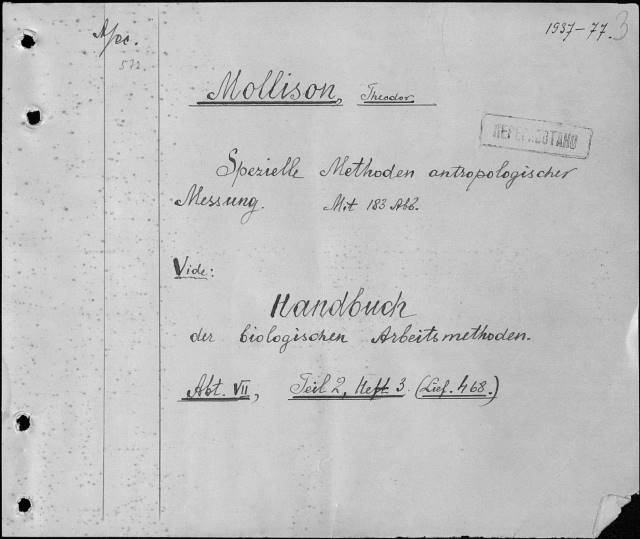 1937-77. 3
Mollison, Theodor
Spezielle Methoden antropologischer
Messung. Mit 183 Abb.
Vide:
Handbuch
der biologischen Arbeitsmethoden.
Abt. VII, Teil 2, Heft 3. (Lief. 468.)